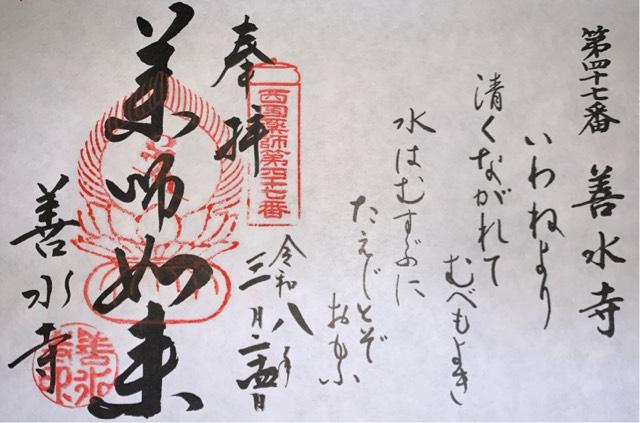 第四十七番 善水寺
いわねより
清くながれて
むべもよき
水はむすぶに
たえじとぞ
おもふ
奉拝
西国薬師第四十七番
令和八年
三月二十四日
薬師如来
善水寺